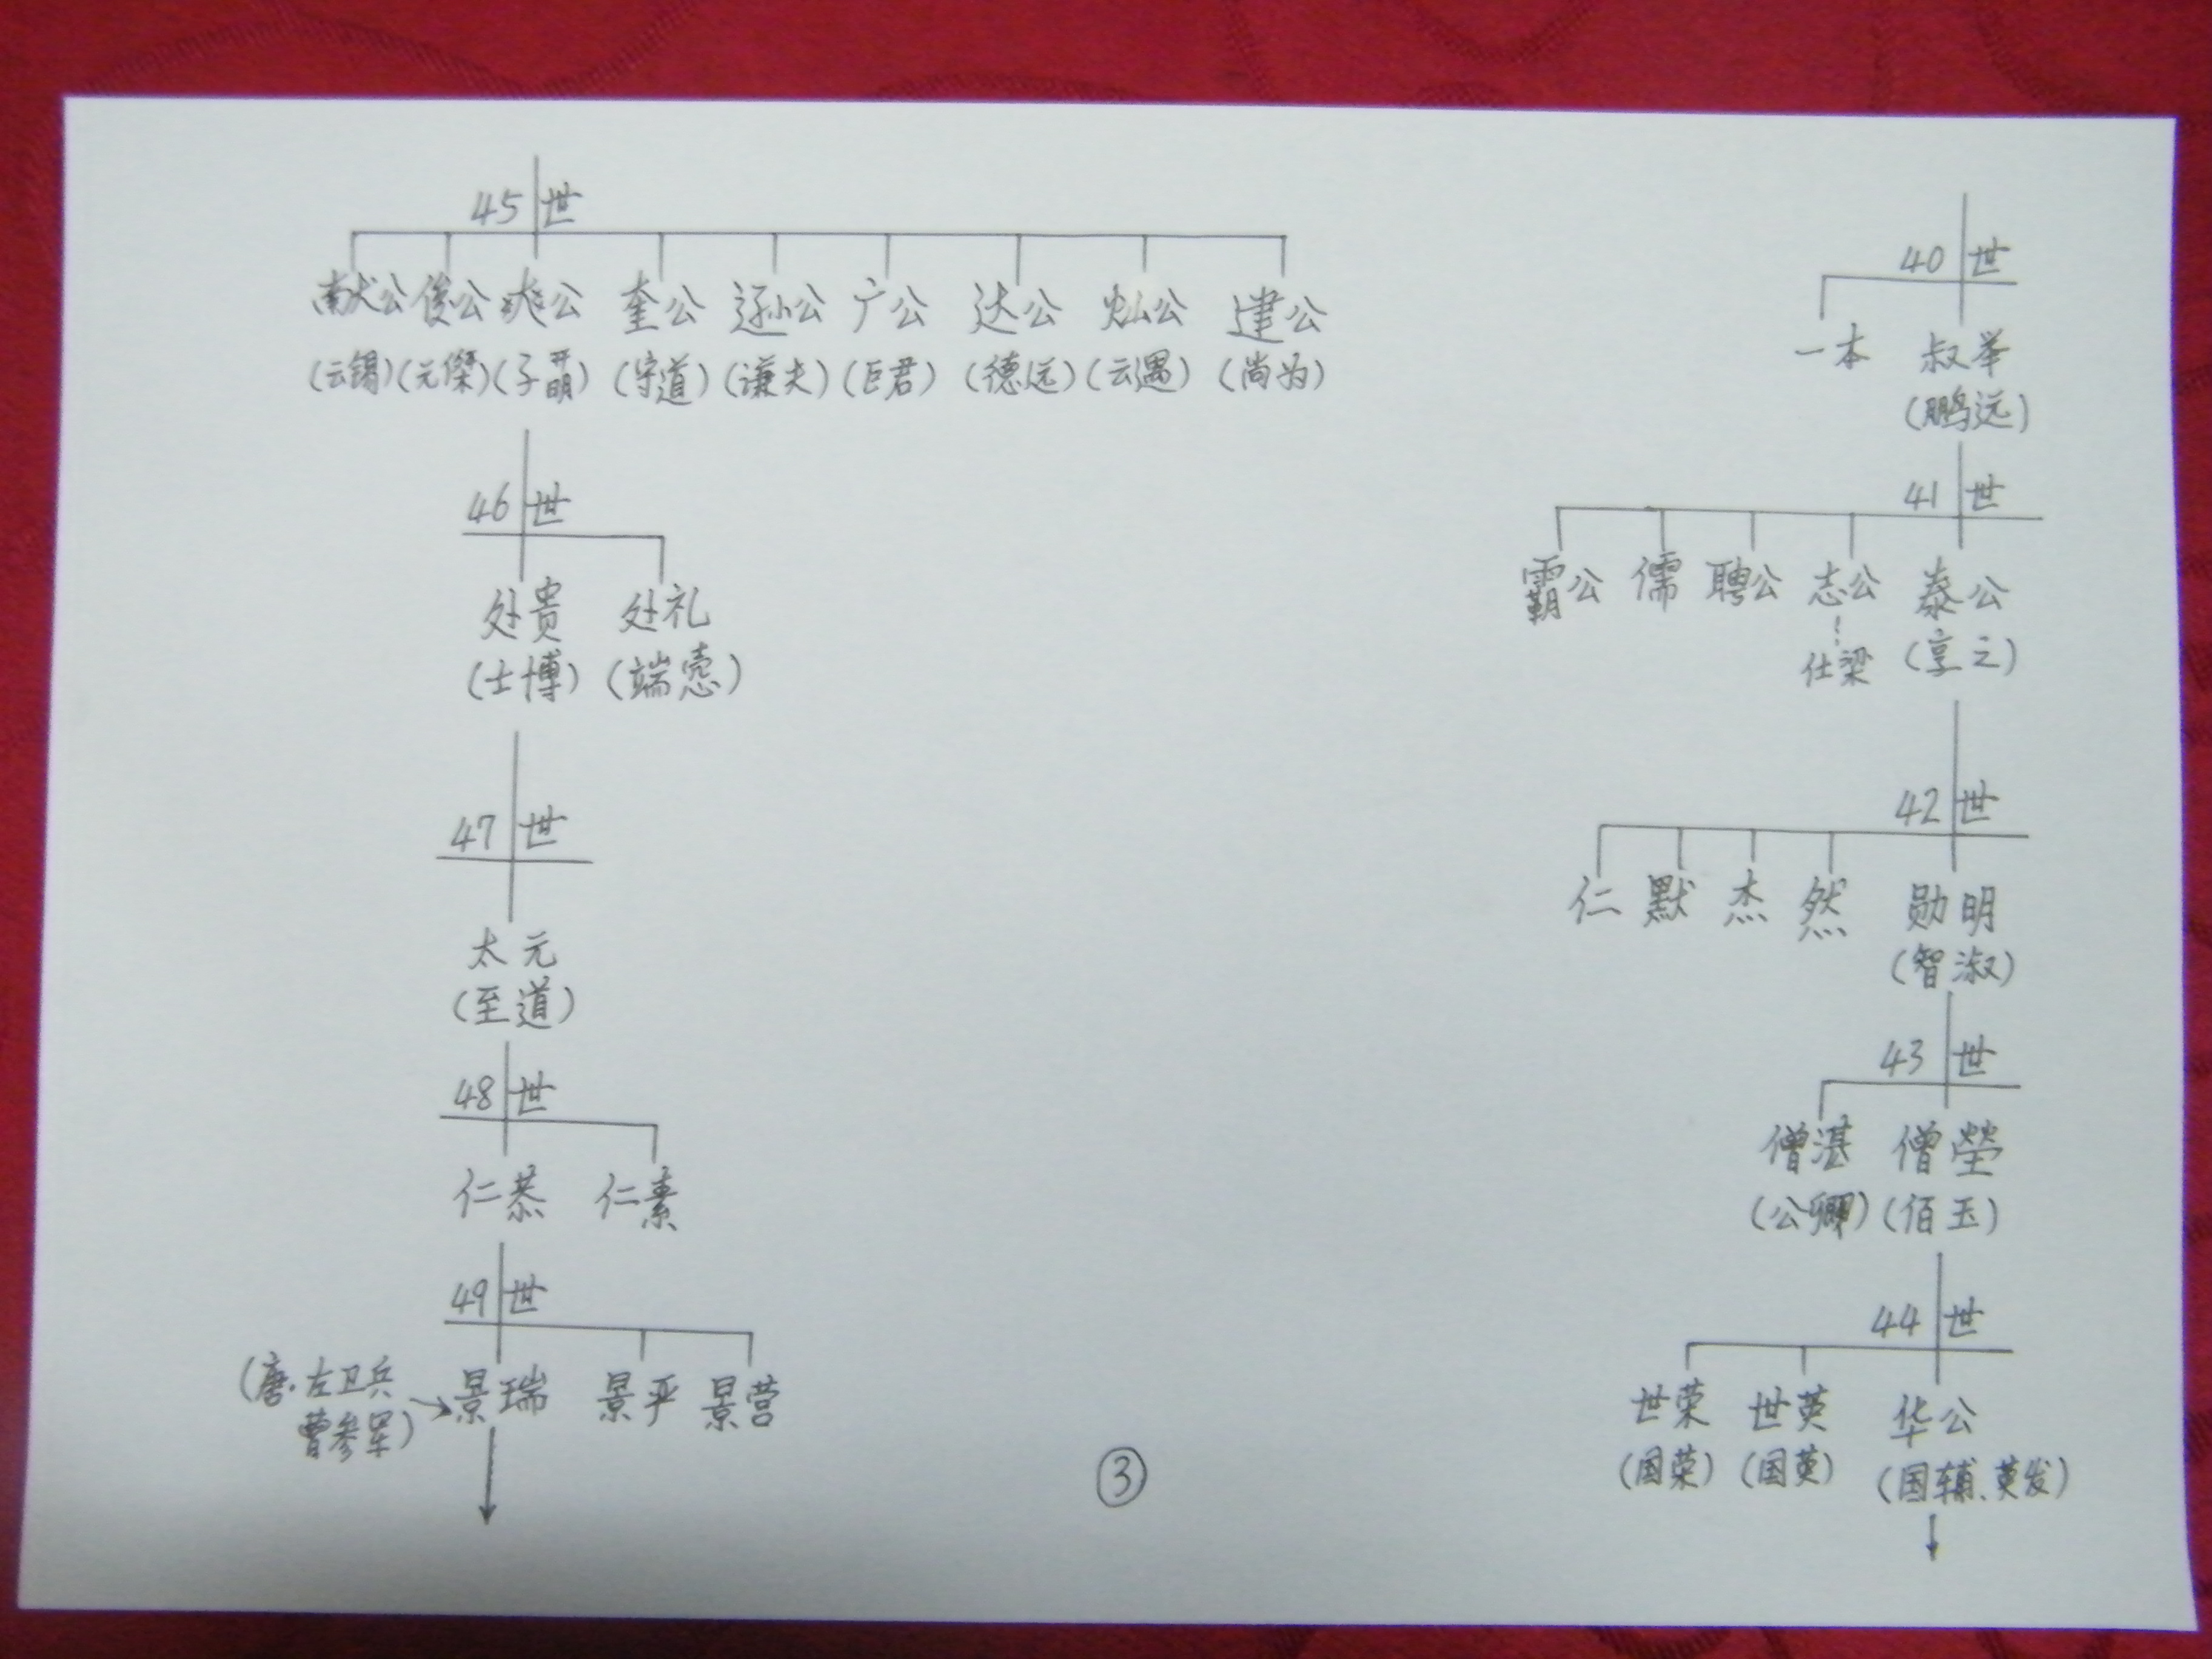 40世
一本 叔举
(鹏远)
41世
霸公 儒 聘公 志公 泰公
仕梁 (享之)
42世
仁 默 杰 然 勋明
(智淑)
43世
僧湛 僧莹
(公卿) (佰玉)
44世
世荣 世英 华公
(国荣) (国英) (国辅、英发)
45世
献公 俊公 爽公 奎公 逊公 广公 达公 灿公 建公
(云锡) (元傑) (子開) (守道) (谦夫) (巨君) (德远) (云遇) (尚为)
46世
处贵 处礼
(士博) (端悫)
47世
太元
(至道)
48世
仁恭 仁素
49世
(唐.左卫兵 景瑞 景平 景营
曹参军)
③